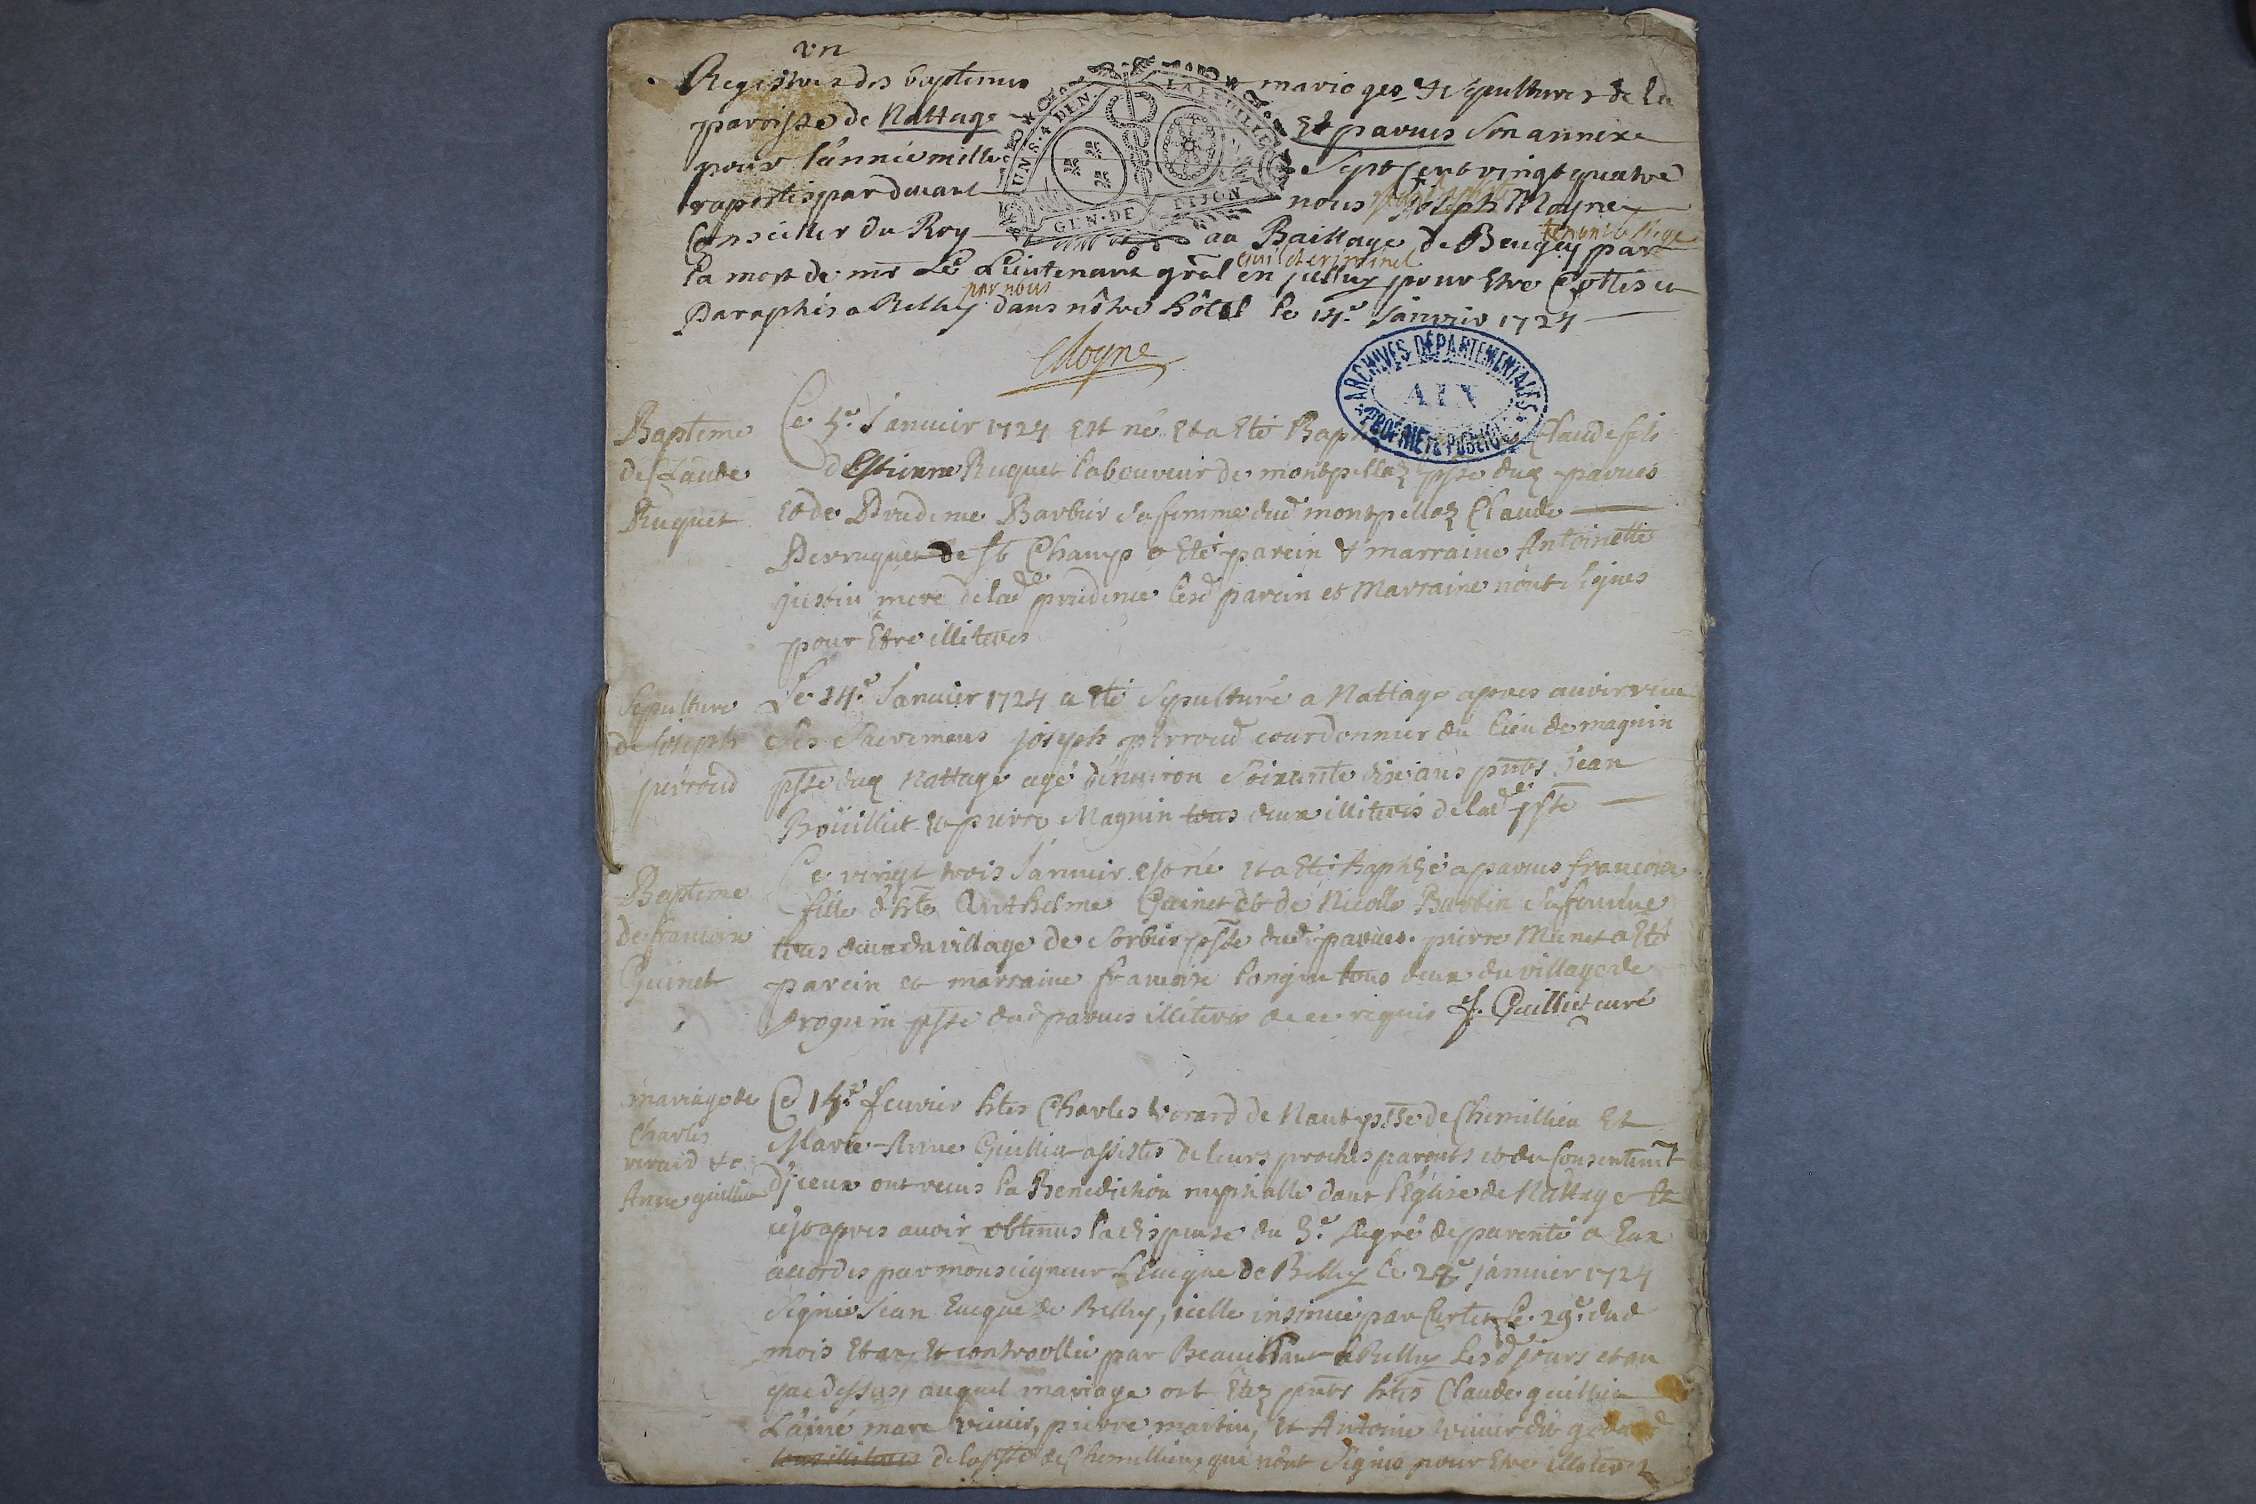 vn
Registres des baptemes mariages & sepultures de la
paroisse de Nattage Et parues son annexe
pour l'année mille Sept Cent vingt quatre
raportés par deuant nous Joseph Moyne
Conseiller du Roy au Bailliage de Beugey tenant le siege par
la mort de mr Le Lieutenant gñal ciuil et criminel en jcelluy pour Etre Cottés et
Paraphés par nous a Belley dans nôtre hôtel le 14e. Januier 1724
Moyne
ARCHIVES DÉPARTEMENTALES
AIN
PROPRIÉTÉ PUBLIQUE
GEN. DE DIJON
Bapteme
de Claude
Ruquet
Ce 5e. Januier 1724 Est né Et a Eté Claude fils
d'Estienne Ruquet laboureur de montpellaz psse dud parues
Et de Prudence Barbier sa femme dud montpellaz Claude
Derruquet de St Champ a Eté parein & marraine Antoinette
justin mere de lade prudence lesd parein et Marraine n'ont signés
pour Etre illiterés
Sepulture
de Joseph
perroud
Le 14e. Januier 1724 a Eté Sepulturé a Nattage apres auoir receu
Ses Sacremens joseph perroud courdonnier du lieu de magnin
psse dud Nattage agé d'enuiron soixante dix ans pnts Jean
Boüilliet Et pierre Magnin tous deux illiterés de lade psse
Bapteme
de francoise
Guinet
Ce vingt trois Januier est né Et a Eté Baptizé a parues francoise
fille d'hte Anthelme Guinet et de Nicolle Barbin sa femme
tous deux du village de Sorbier psse dud parues. pierre Munet a Eté
parein et marraine francoise longin tous deux du village de
psse dud parues illiterés de ce requis J. Guilliet curé
mariage de
Charles
verard & c
Anne guilliet
Ce 15e feurier htes Charles verard de Nant psse de Chemillieu Et
Marie-Anne Guilliet assistés de leurs proches parents et du Consentemt
d'jceux ont receus la Benediction nuptialle dans l'Eglise de Nattage Et
c'est apres auoir obtenus la dispense du 3e. degré de parenté a Eux
accordés par monseigneur L'Eueque de Belley le 24e januier 1724
Signée Jean Eueque de Belley, icelle insinuée par le. 29e. dud
mois Et an, Et controollée par a Belley lesd jours et an
que dessus, auquel mariage ont Etez pnts htes Claude guilliet
L'ainé marc viuier, pierre martin, et Antoine viuier dit
tous illiterés de la psse de Chemillieu, qui n'ont Signés pour Etre illiterés